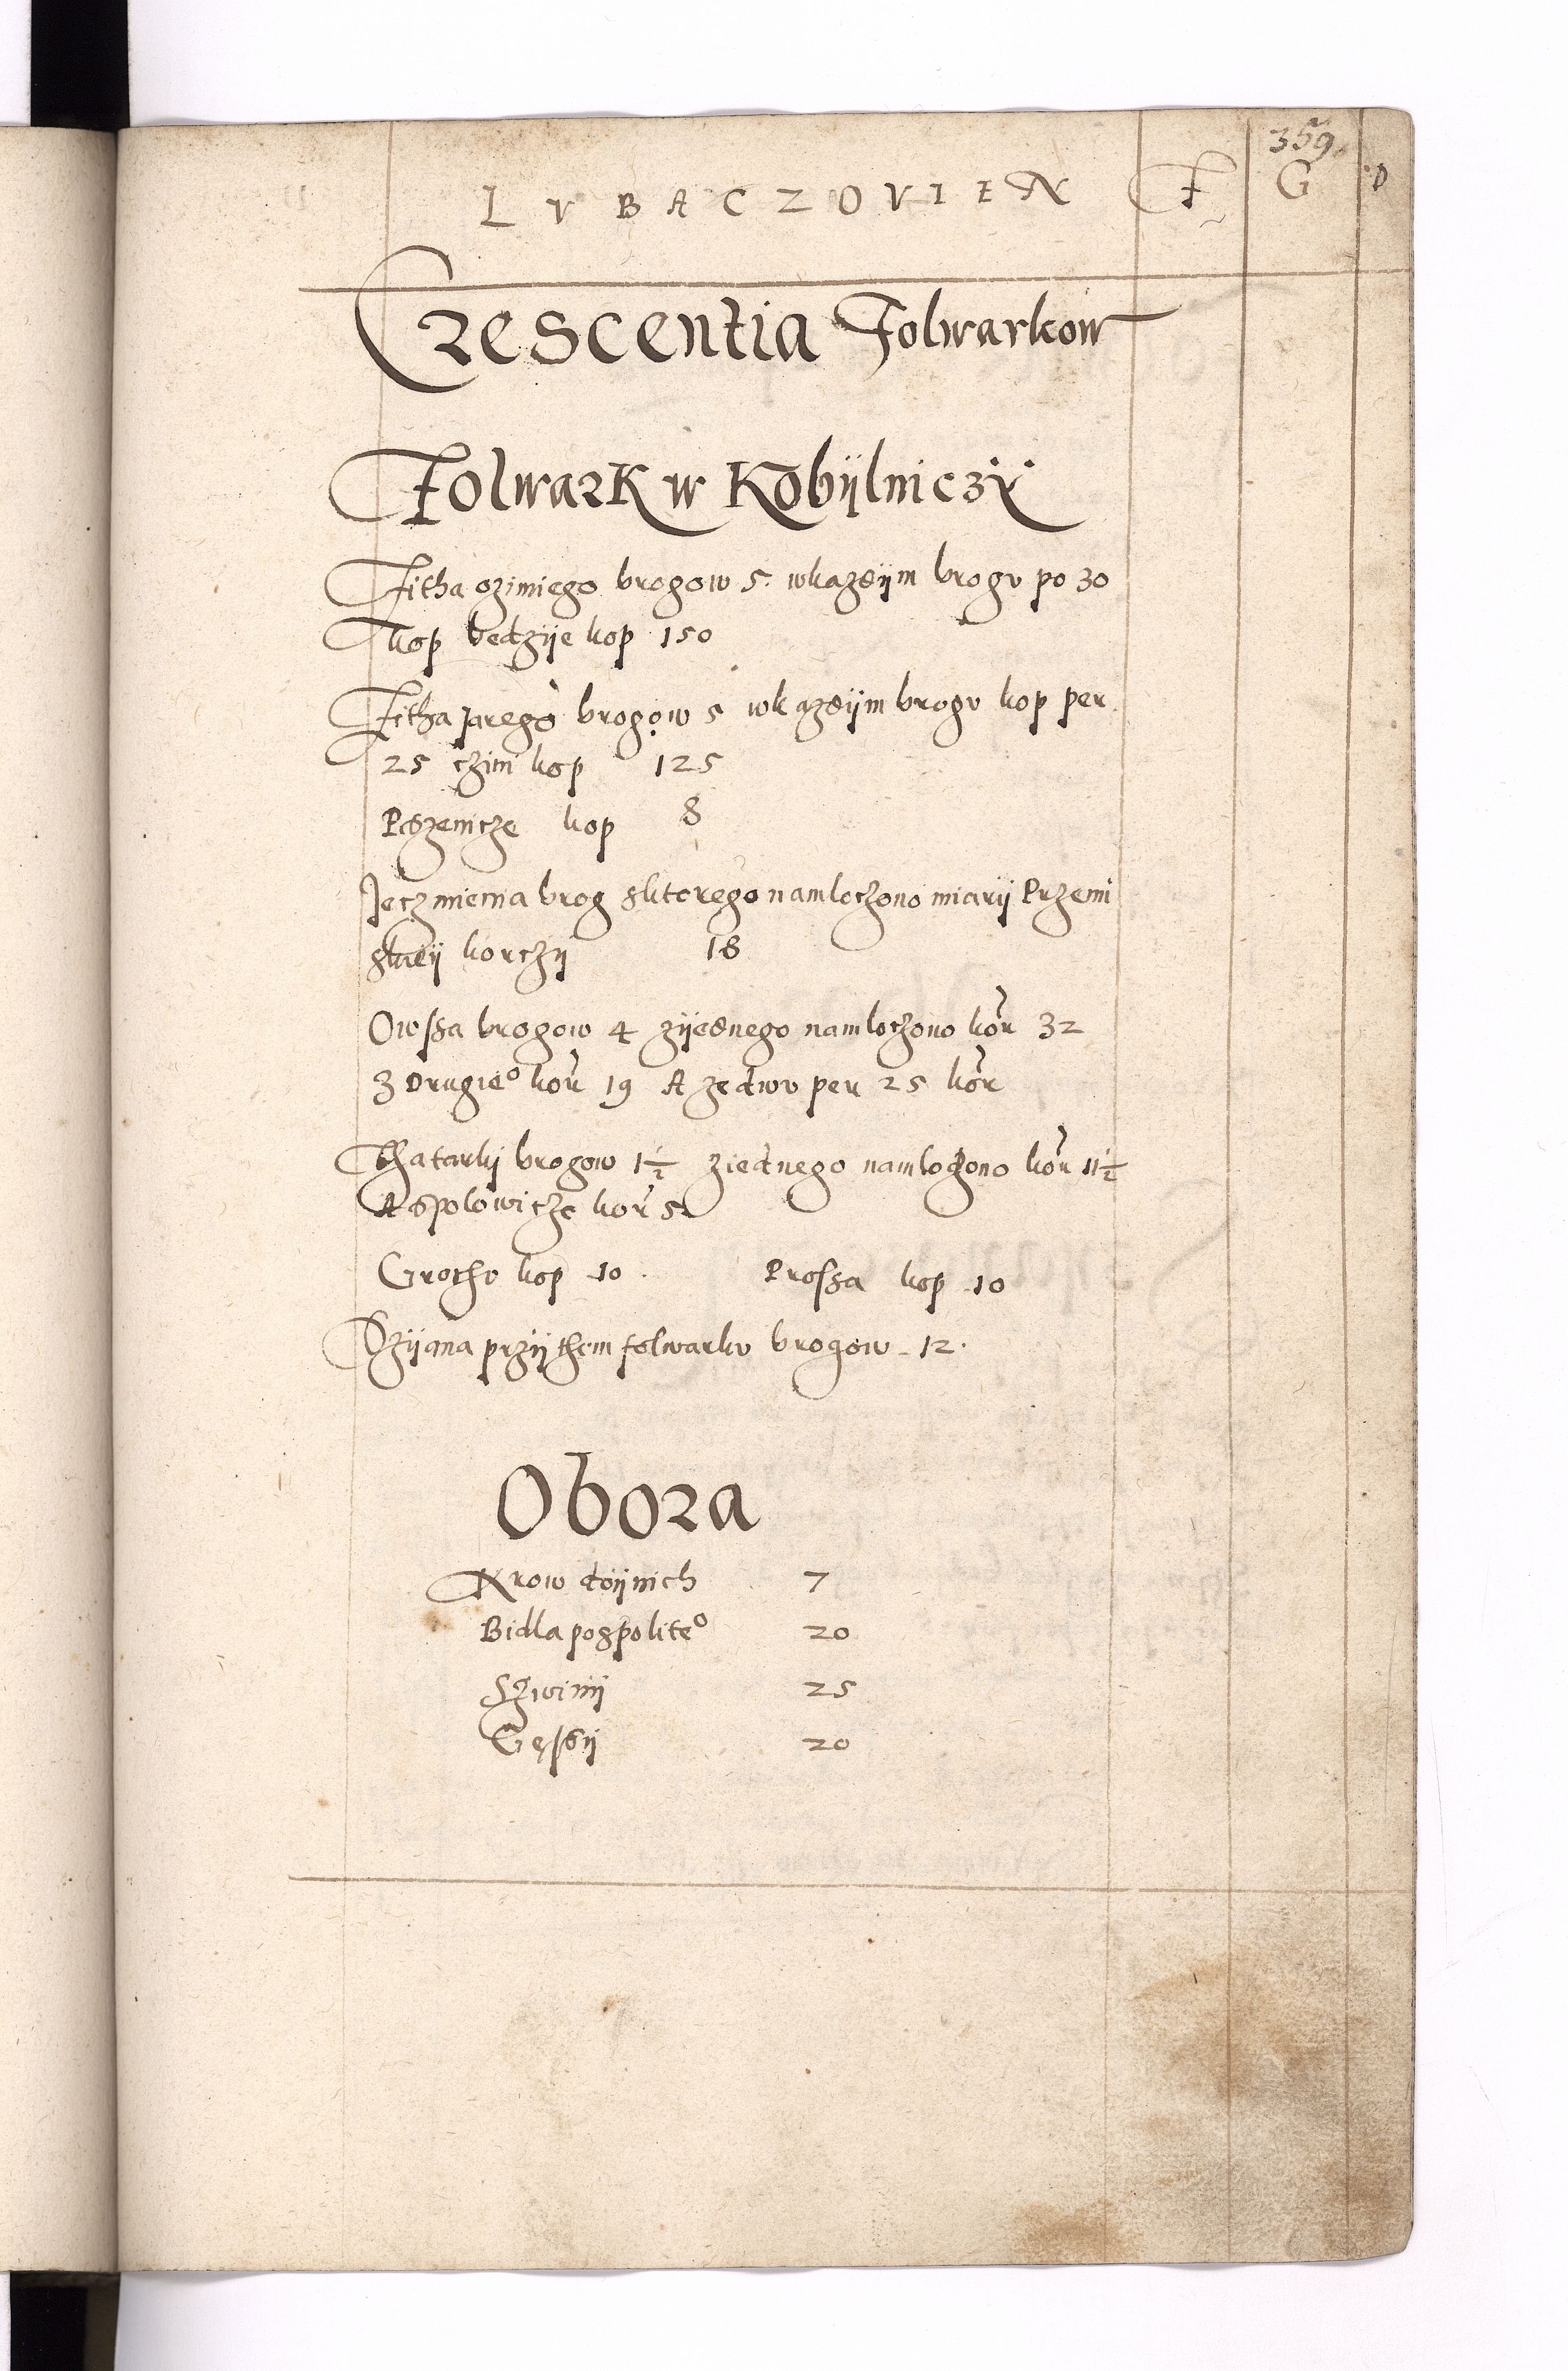 359
LVBACZOVIEN F G D
Crescentia Folwarkow
Folwark w Kobijlniczÿ
Zitha ozimiego brogow 5. wkazdijm brogv po 30
kop bedzije kop 150
Zitha jarego brogow 5 wkazdijm brogv kop per
25 czini kop 125
Pszenicze kop 8
Jeczmienia brog sktorego namloczono miarij Przemi
skiij korczij 18
Owssa brogow 4 zijednego namloczono kor 32
Z drugieº kor 19 A zedwv per 25 kor
Thatarkij brogow 1½ ziednego namloczono kor 11½
A spolowicze kor 5
Grochv kop 10. Prossa kop 10
Szijana przijthem folwarkv brogow 12.
Obora
Krow doijnich 7
Bidla pospoliteº 20
Szwinij 25
Gęssij 20